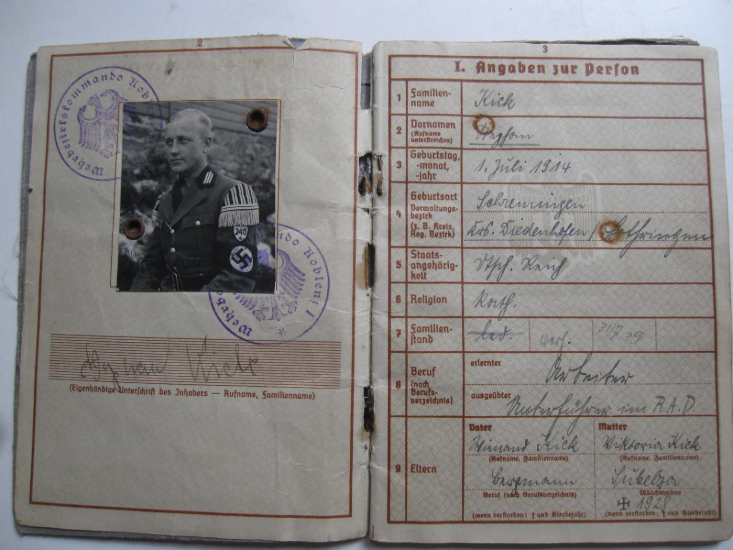 2
Wehrbezirkskommando Koblenz
Wehrbezirkskommando Koblenz I
240
(Eigenhändige Unterschrift des Inhabers — Rufname, Familienname)
3
I. Angaben zur Person
1 Familien-
name
Kick
2 Vornamen
(Rufname
unterstreichen)
Stephan
3 Geburtstag,
-monat,
-jahr
1. Juli 1914
4 Geburtsort
Verwaltungs-
bezirk
(z. B. Kreis,
Reg. Bezirk)
Krs. Diedenhofen / Lothringen
5 Staats-
angehörig-
keit
Dtsch. Reich
6 Religion
Kath.
7 Familien-
stand
led. verh. 31/7 39
8 Beruf
(nach
Berufs-
verzeichnis)
erlernter
Arbeiter
ausgeübter
Unterführer im R.A.D
9 Eltern
Vater
Wienand Kick
(Rufname, Familienname)
Bergmann
Beruf (nach Berufsverzeichnis)
(wenn verstorben: † und Sterbejahr)
Mutter
Viktoria Kick
(Rufname, Familienname)
Mädchenname
† 1928
(wenn verstorben: † und Sterbejahr)